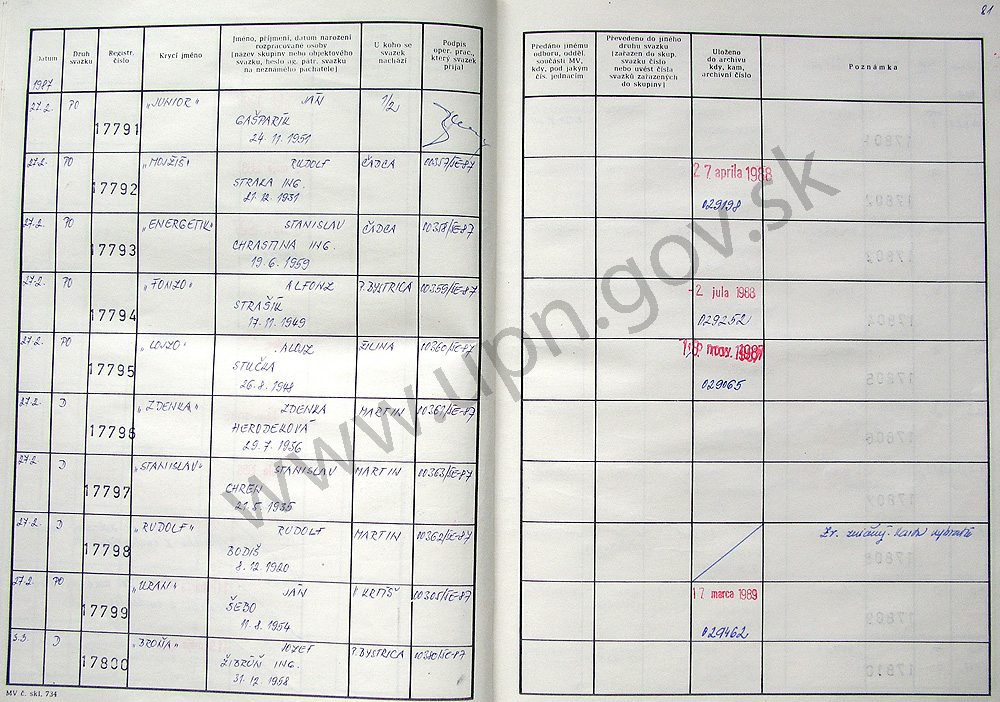 81
Datum
Druh svazku
Registr. číslo
Krycí jméno
Jméno, příjmení, datum narození rozpracované osoby
(název skupiny nebo objektového svazku, heslo ag. pátr. svazku na neznámého pachatele)
U koho se svazek nachází
Podpis oper. prac., který svazek přijal
Předáno jinému odboru, odděl. součásti MV, kdy, pod jakým čís. jednacím
Převedeno do jiného druhu svazku (zařazen do skup. svazku číslo nebo uvést čísla svazků zařazených do skupiny)
Uloženo do archivu kdy, kam, archivní číslo
Poznámka
1987
27.2. PO 17791 „JUNIOR" JÁN 1/2
GAŠPARÍK
24.11.1951
27.2. PO 17792 „MOJŽIŠ" RUDOLF ČADCA 00357/SE-87 27 aprila 1988
STRAKA ING.
21.12.1931 029198
27.2. PO 17793 „ENERGETIK" STANISLAV ČADCA 00358/SE-87
CHRASTINA ING.
19.6.1959
27.2. PO 17794 „FONZO" ALFONZ P.BYSTRICA 00359/SE-87 -2 jula 1988
STRAŠÍK
17.11.1949 029252
27.2. PO 17795 „LOJZO" ALOJZ ŽILINA 00360/SE-87 nov. 1987
STUČKA
26.8.1948 029065
27.2. D 17796 „ZDENKA" ZDENKA MARTIN 00361/SE-87
HERODEKOVÁ
29.7.1956
27.2. D 17797 „STANISLAV" STANISLAV MARTIN 00363/SE-87
CHREN
21.5.1935
27.2. D 17798 „RUDOLF" RUDOLF MARTIN 00362/SE-87
BODIŠ
8.12.1920
27.2. PO 17799 „URAN" JÁN V KRTÍŠ 00365/SE-87 17 marca 1989
ŠEBO
11.8.1954 029462
5.3. D 17800 JOZEF P.BYSTRICA 00380/SE-87
ING.
31.12.1958
MV č. skl. 734
www.upn.gov.sk